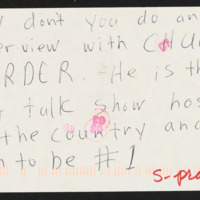 don't you do an
rview with CHU
RDER. He is th
talk show hos
the country an
to be #1
s-pra